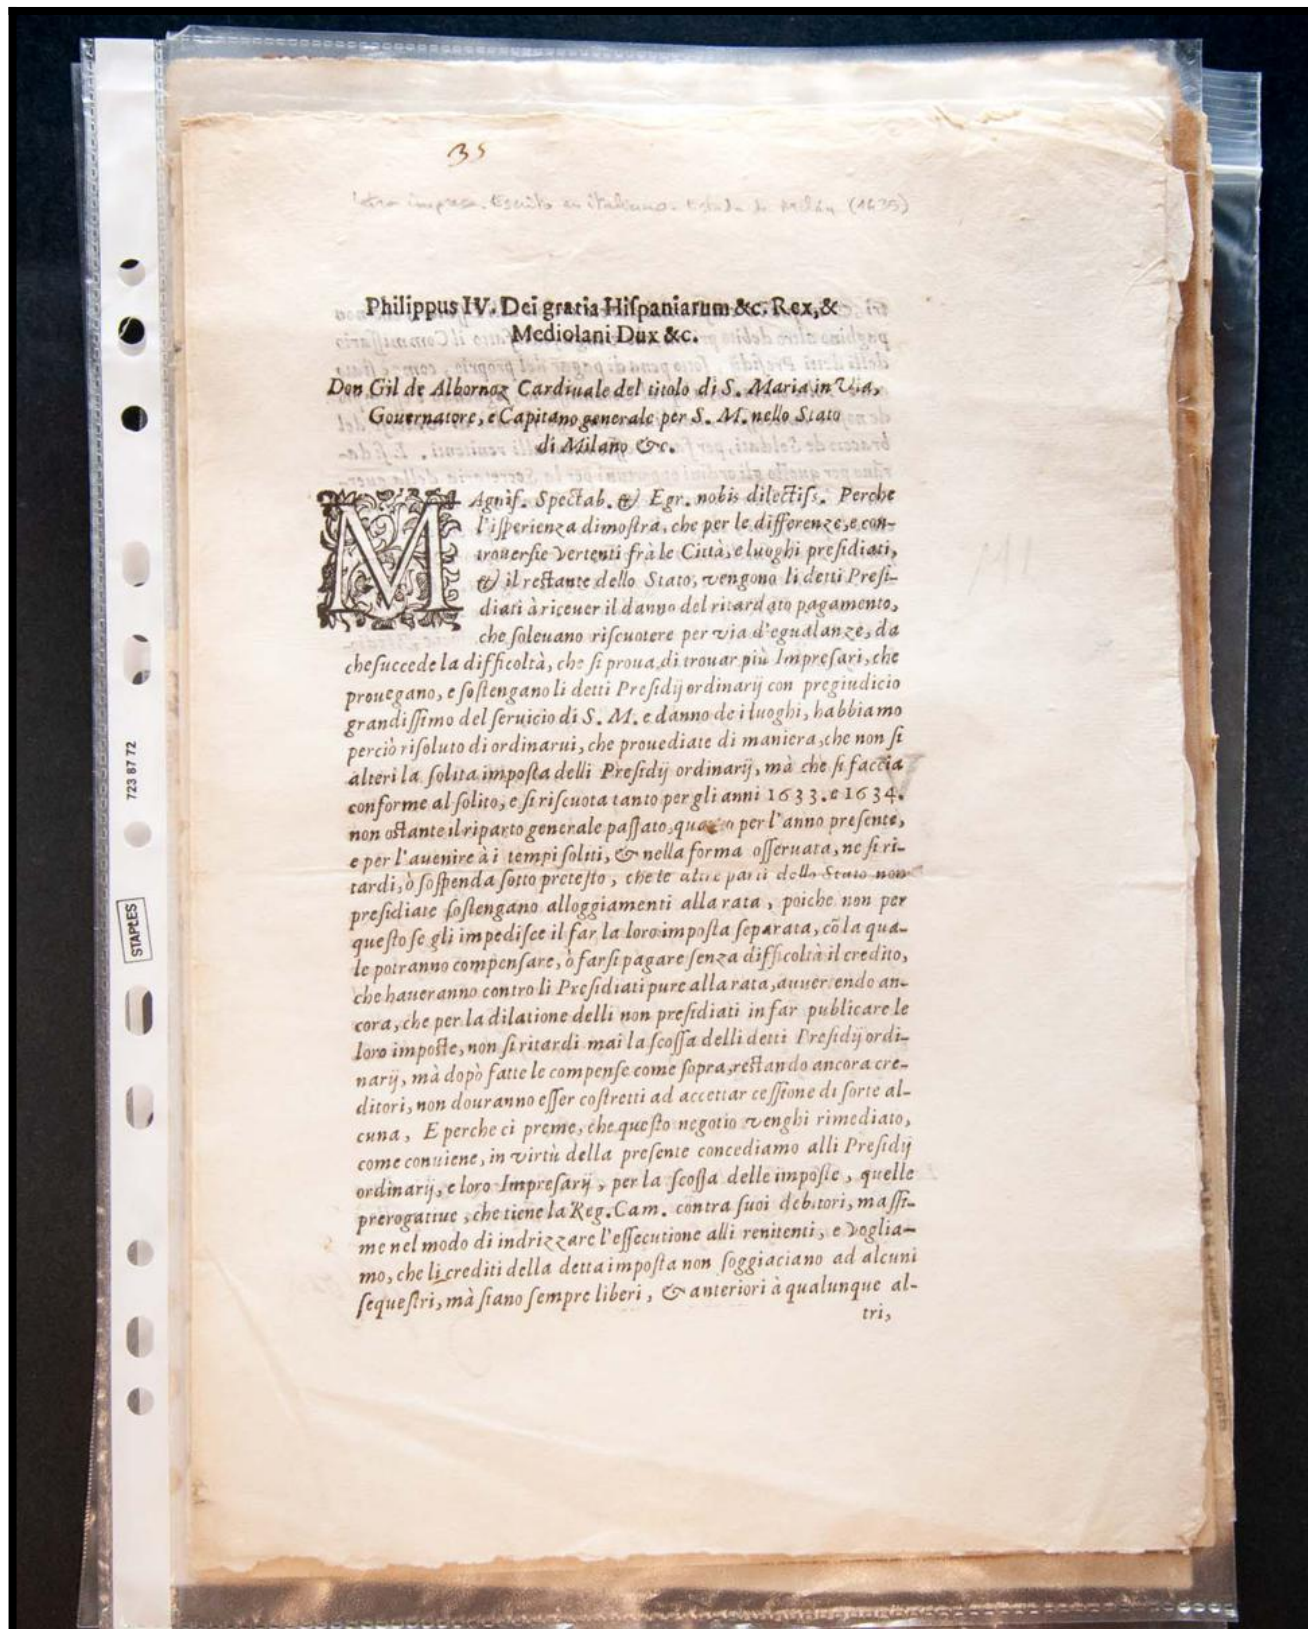 35
(1635)
Philippus IV. Dei gratia Hiſpaniarum &c. Rex, &
Mediolani Dux &c.
Don Gil de Albornoz Cardinale del titolo di S. Maria in Via,
Gouernatore, e Capitano generale per S. M. nello Stato
di Milano &c.
MAgniſ. Spectab. & Egr. nobis dilectiſs. Perche
l'iſperienza dimoſtra, che per le differenze, e con-
trouerſie vertenti frà le Città, e luoghi preſidiati,
& il reſtante dello Stato, vengono li detti Preſi-
diati à riceuer il danno del ritardato pagamento,
che ſoleuano riſcuotere per via d'egualanze, da
che ſuccede la difficoltà, che ſi proua, di trouar più Impreſari, che
prouegano, e ſoſtengano li detti Preſidij ordinarij con pregiudicio
grandiſſimo del ſeruicio di S. M. e danno de i luoghi, habbiamo
perciò riſoluto di ordinarui, che prouediate di maniera, che non ſi
alteri la ſolita impoſta delli Preſidij ordinarij, mà che ſi faccia
conforme al ſolito, e ſi riſcuota tanto per gli anni 1633. e 1634.
non oſtante il riparto generale paſſato, quanto per l'anno preſente,
e per l'auenire à i tempi ſoliti, & nella forma oſſeruata, ne ſi ri-
tardi, ò ſoſpenda ſotto preteſto, che le altre parti dello Stato non
preſidiate ſoſtengano alloggiamenti alla rata, poiche non per
queſto ſe gli impediſce il far la loro impoſta ſeparata, cõ la qua-
le potranno compenſare, ò farſi pagare ſenza difficoltà il credito,
che haueranno contro li Preſidiati pure alla rata, auuertendo an-
cora, che per la dilatione delli non preſidiati in far publicare le
loro impoſte, non ſi ritardi mai la ſcoſſa delli detti Preſidij ordi-
narij, mà dopò fatte le compenſe come ſopra, reſtando ancora cre-
ditori, non douranno eſſer coſtretti ad accettar ceſſione di ſorte al-
cuna, E perche ci preme, che queſto negotio venghi rimediato,
come conuiene, in virtù della preſente concediamo alli Preſidij
ordinarij, e loro Impreſarij, per la ſcoſſa delle impoſte, quelle
prerogatiue, che tiene la Reg. Cam. contra ſuoi debitori, maſſi-
me nel modo di indrizzare l'eſſecutione alli renitenti, e voglia-
mo, che li crediti della detta impoſta non ſoggiaciano ad alcuni
ſequeſtri, mà ſiano ſempre liberi, & anteriori à qualunque al-
tri,
723 87 72
STAPLES